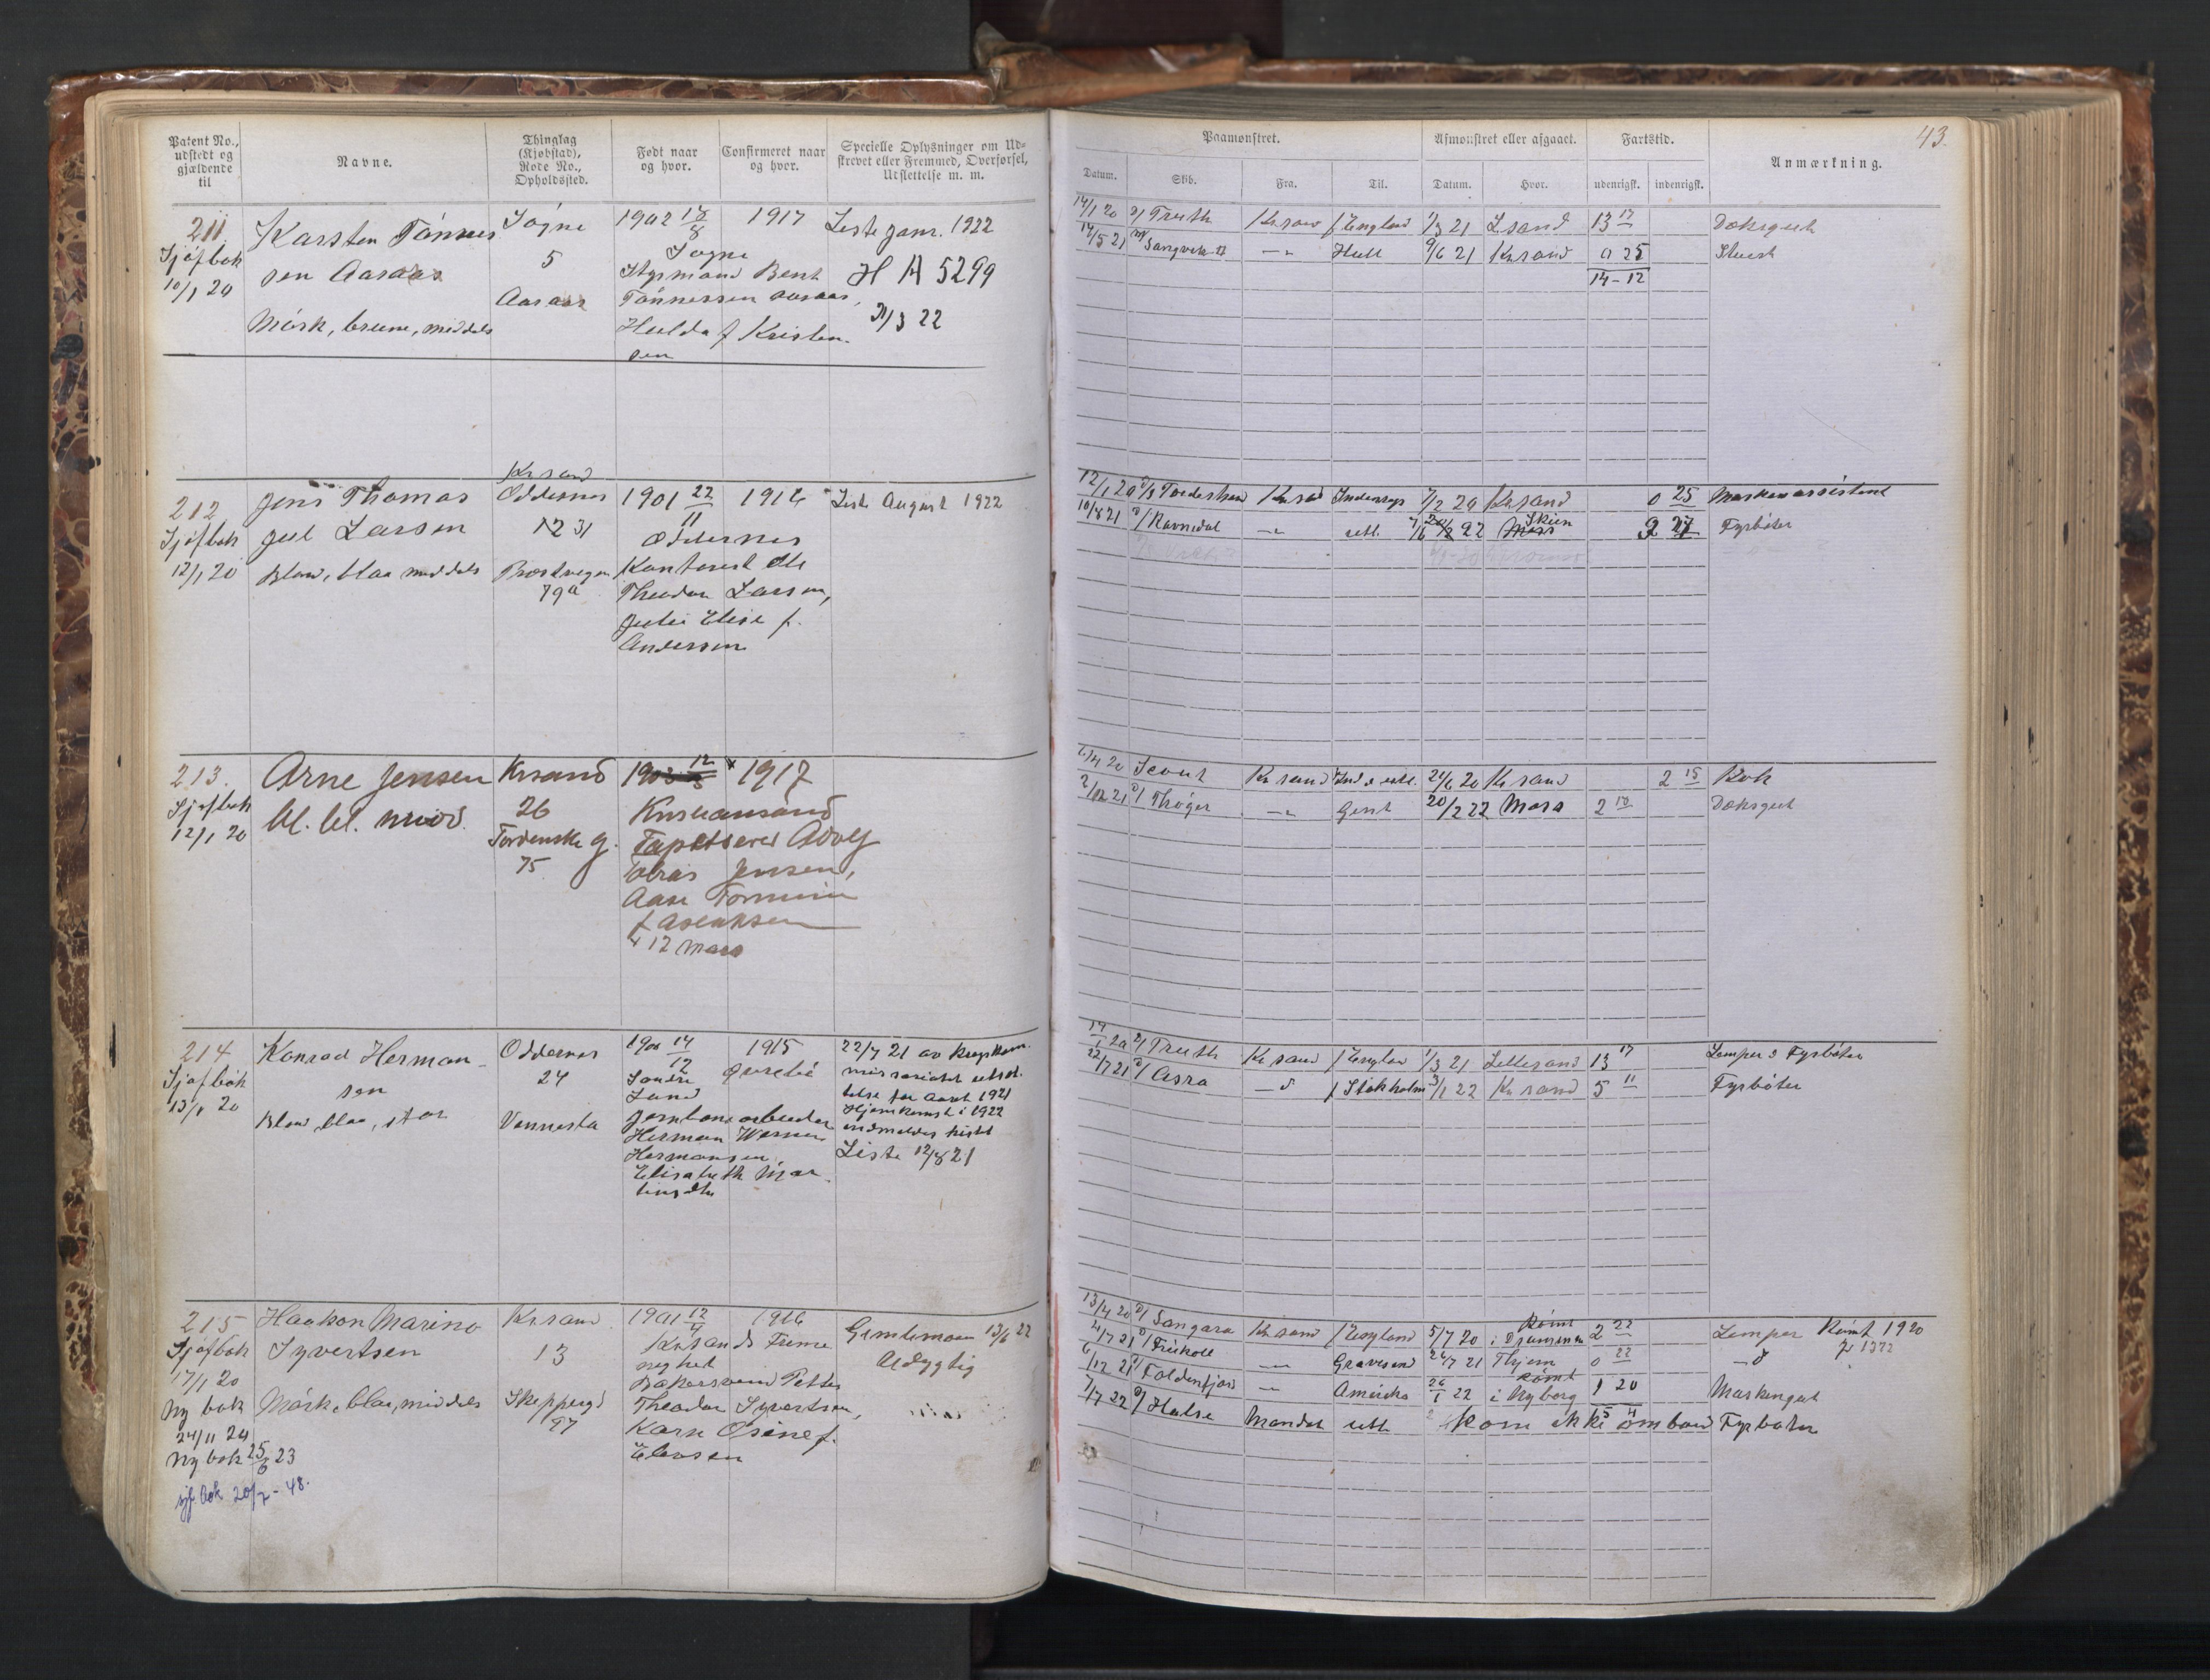 Patent No., udstedt og gjældende til
Navne.
Thinglag (Kjøbstad), Rode No., Opholdssted.
Født naar og hvor.
Confirmeret naar og hvor.
Specielle Oplysninger om Udskrevet eller Fremmed, Overførsel, Udslettelse m. m.
211
Sjøfbok
10/1 20
Karsten Tønnes
sen Aaraas
Mørk, brune, middels
Søgne
5
Aaraas
1902 18/8 1917
Søgne
Styrmand Bent
Tønnessen Aaraas,
Hulda f Kristen-
sen
Liste janr. 1922
H A 5299
21/3 22
212
Sjøfbok
12/1 20
Jens Thomas
Juel Larsen
Blond, blaa middels
Krsand
Oddernes
12 31
Præstvegen
79a
1901 22/11 1916
Oddernes
Kontorist Ole
Theodor Larsen,
Julie Elise f.
Andersen
Liste August 1922
213.
Sjøfbok
12/1 20
Arne Jensen
bl. bl. midd.
Krsand
26
Tordenskg.
75
1903 12/3 x 1917
Kristiansand
Tapetserer Adolf
Tobias Jensen,
Aase Tomine
f Aslaksen
x 12 Mars
214
Sjøfbok
13/1 20
Konrad Herman-
sen
Blond, blaa, stor
Oddernes
24
Vennesla
1900 14/12 1915
Søndre Øvrebø
Land
Jernbanearbeider
Herman Werner
Hermansen,
Elisabeth Mar-
tinsdtr
22/7 21 av Krgskom-
missariatet utsæt-
telse for aaret 1921
Hjemkomst i 1922
indmeldes hertil
Liste 12/8 21
215
Sjøfbok
17/1 20
Ny bok
24/11 20
Ny bok 25/6 23
sjf. bok 20/7 - 48.
Haakon Marino
Syvertsen
Mørk, blaa, middels
Krsand
13
Skippergd
97
1901 12/4 1916
Krsands Frime
neghet
Bakersvend Petter
Theodor Syvertsen,
Karn Osine f.
Elevsen
Gimlemoen 13/6 22
Udygtig
43.
Paamønstret.
Afmønstret eller afgaaet.
Fartstid.
Anmærkning.
Datum.
Skib.
Fra.
Til.
Datum.
Hvor.
udenrigsk.
indenrigsk.
14/1 20 S/ Truth Krsand f England 1/3 21 Lsand 13 17 Dæksgut
14/5 21 M/ Sangvik -"- Hull 9/6 21 Krsand 0 25 Stuert
14-12
12/1 20 D/S Tordenskjold Krsand Indenrgs 7/2 20 Krsand 0 25 Maskinassistent
10/8 21 D/ Ravnedal -"- utl. 7/6 22 Skien Fyrbøter
6/4 20 Scout Krsand Ind & utl. 21/6 20 Krsand 2 15 Kok
2/12 21 D/ Thøger -"- Gent 20/2 22 Moss 2 18 Dæksgut
14/1 20 S/ Truth Krsand f England 1/3 21 Lillesand 13 17 Lemper & Fyrbøter
22/7 21 D/ Asra -"- f Stokholm 3/1 22 Krsand 5 11 Fyrbøter
13/4 20 D/ Sangara Krsand f England 5/7 20 Rømt i Drammen 2 22 Lemper Rømt 1920
4/7 21 D/ Friskoll -"- Gravesend 26/7 21 Thjem 0 22 -"-
6/12 21 D/ Foldenfjord -"- Amerika 26/1 22 Rømt i Nyborg 1 20 Maskingut
7/7 22 D/ Halse Mandal utl kom ikke ombord Fyrbøter